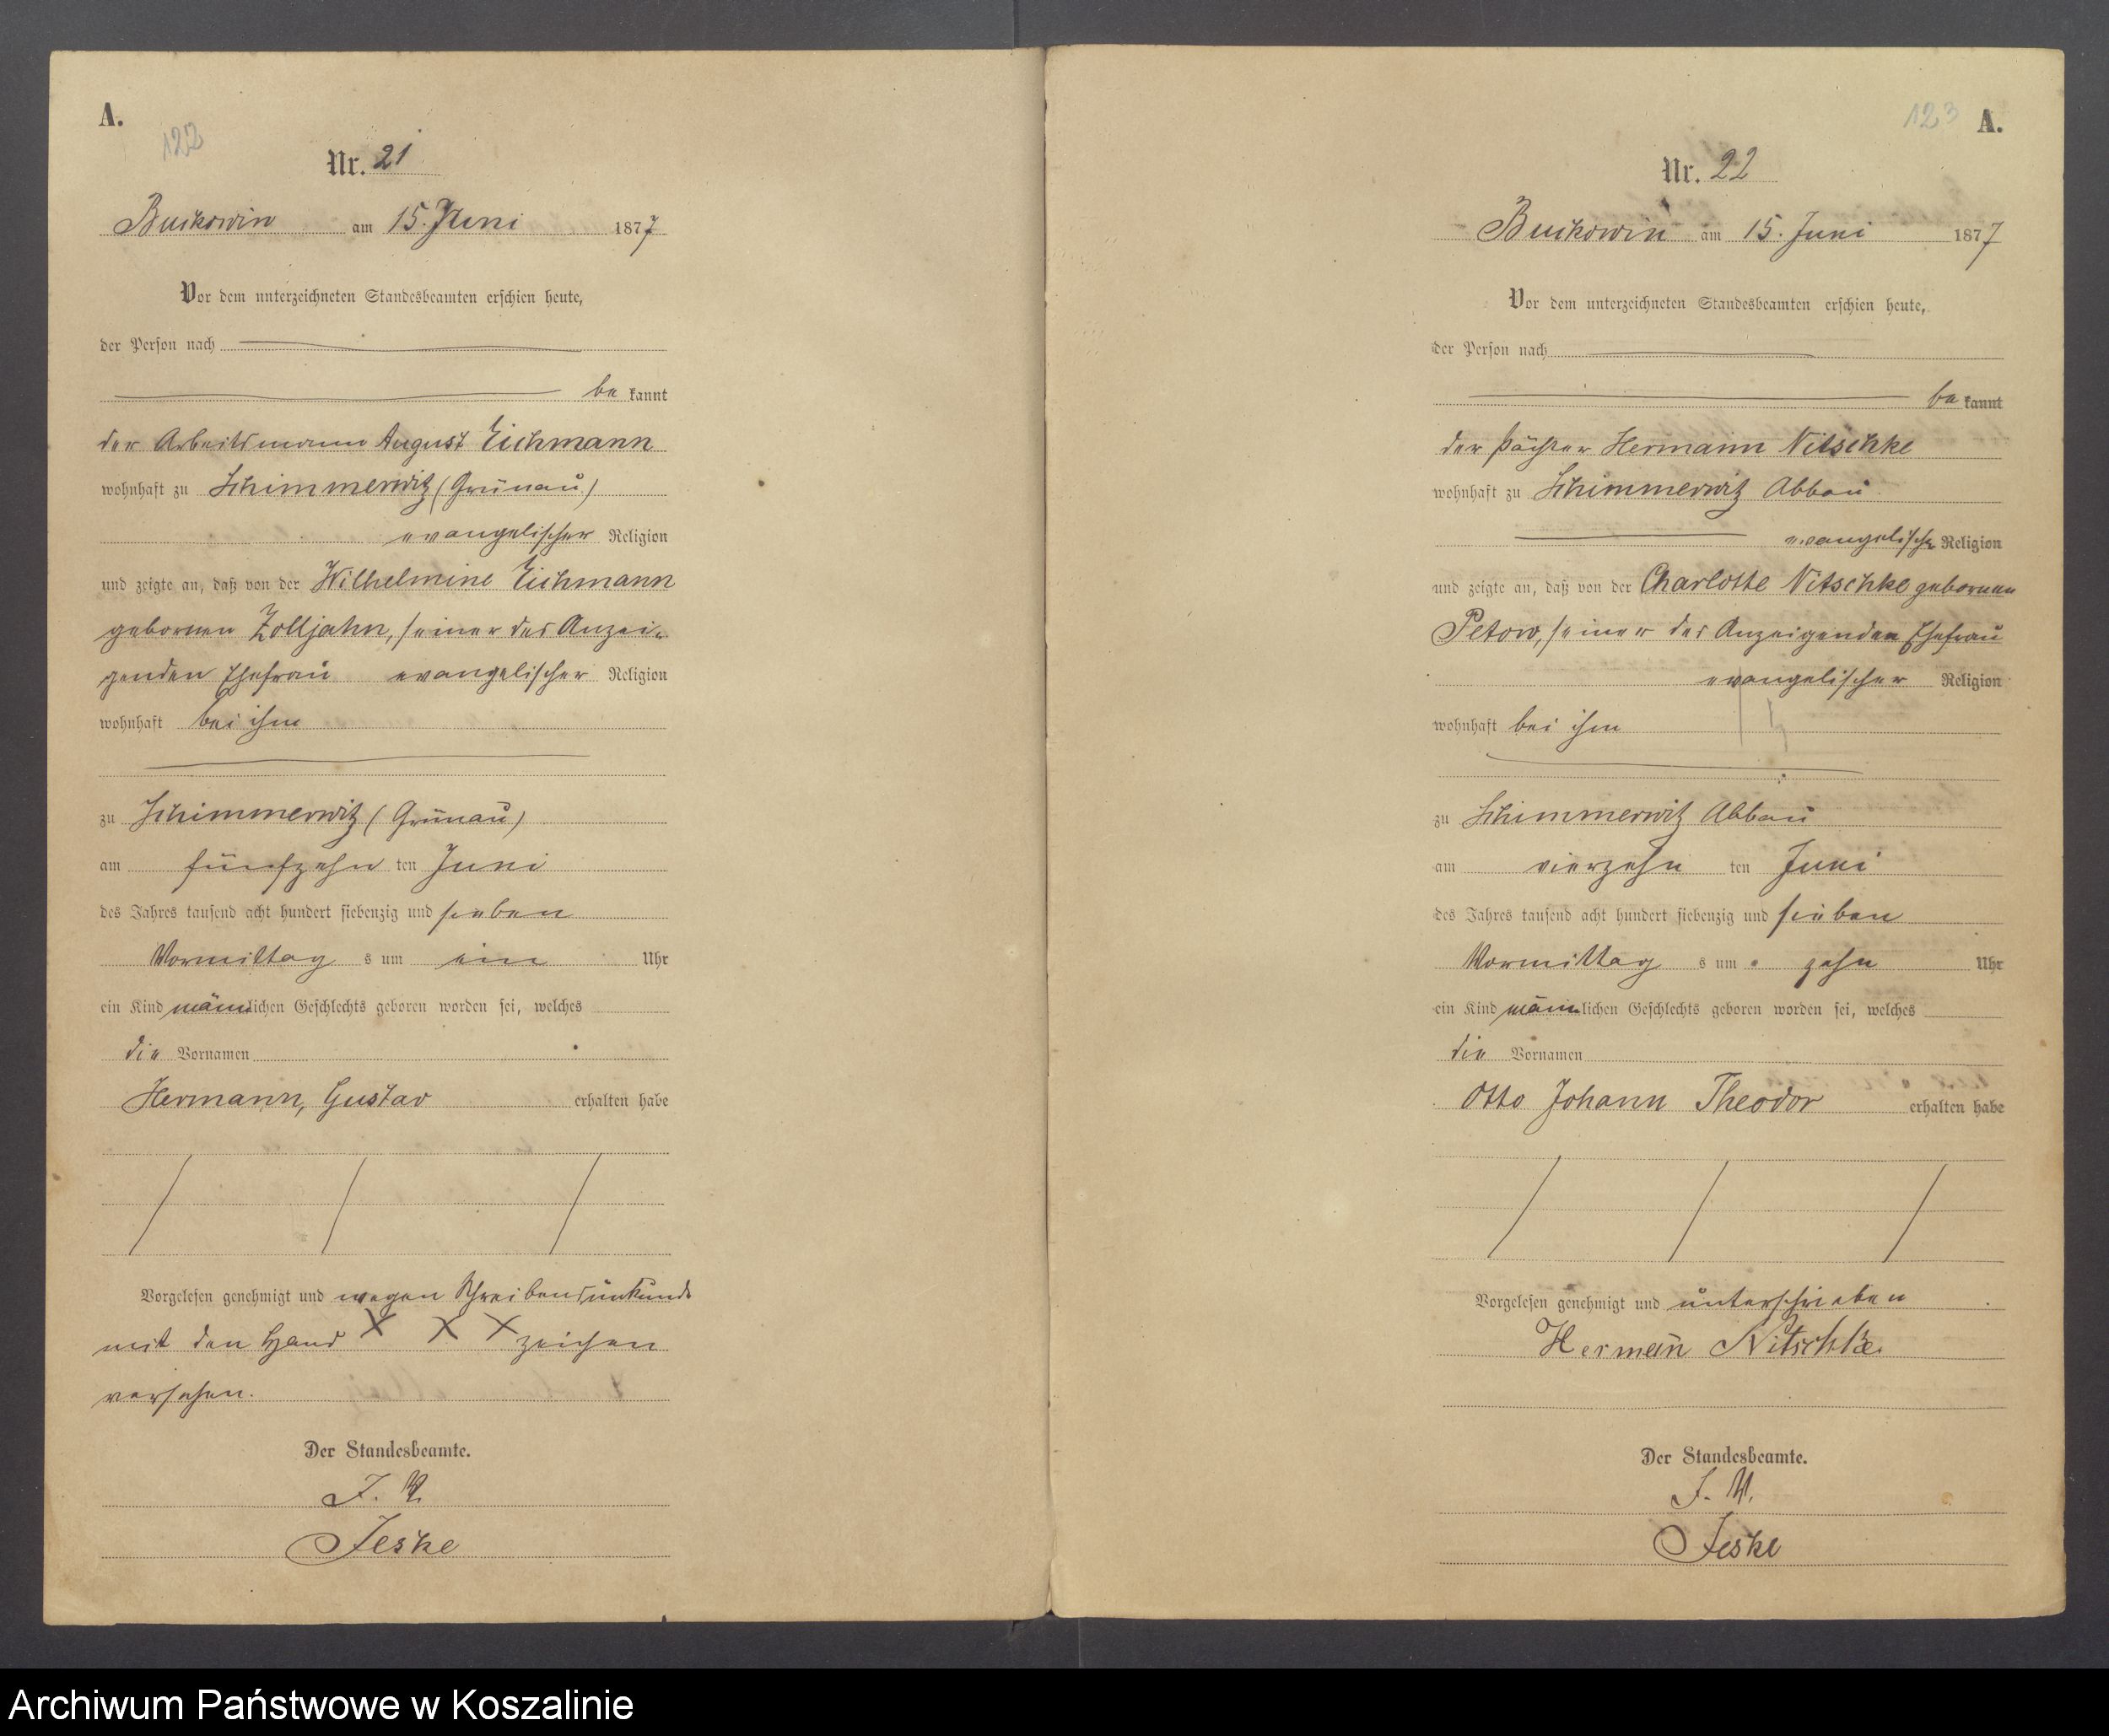 A.
122
Nr. 21
Buckowin am 15. Juni 1877
Vor dem unterzeichneten Standesbeamten erschien heute,
der Person nach
be kannt
der Arbeitsmann August Eichmann
wohnhaft zu Schimmerwitz (Grünau)
evangelischer Religion
und zeigte an, daß von der Wilhelmine Eichmann
gebornen Zolljahn, seiner des Anzei-
genden Ehefrau evangelischer Religion
wohnhaft bei ihm
zu Schimmerwitz (Grünau)
am fünfzehn ten Juni
des Jahres tausend acht hundert siebenzig und sieben
Vormittag s um ein Uhr
ein Kind männlichen Geschlechts geboren worden sei, welches
die Vornamen
Hermann, Gustav erhalten habe
Vorgelesen genehmigt und wegen Schreibensunkunde
mit den Hand X X X zeichen
versehen.
Der Standesbeamte.
J. V.
Jeske
123 A.
Nr. 22
Buckowin am 15. Juni 1877
Vor dem unterzeichneten Standesbeamten erschien heute,
der Person nach
be kannt
der Pächter Hermann Nitschke
wohnhaft zu Schimmerwitz Abbau
evangelischer Religion
und zeigte an, daß von der Charlotte Nitschke gebornen
Petow, seiner des Anzeigenden Ehefrau
evangelischer Religion
wohnhaft bei ihm
zu Schimmerwitz Abbau
am vierzehn ten Juni
des Jahres tausend acht hundert siebenzig und sieben
Vormittag s um zehn Uhr
ein Kind männlichen Geschlechts geboren worden sei, welches
die Vornamen
Otto Johann Theodor erhalten habe
Vorgelesen genehmigt und unterschrieben
Hermann Nitschke.
Der Standesbeamte.
J. V.
Jeske
Archiwum Państwowe w Koszalinie